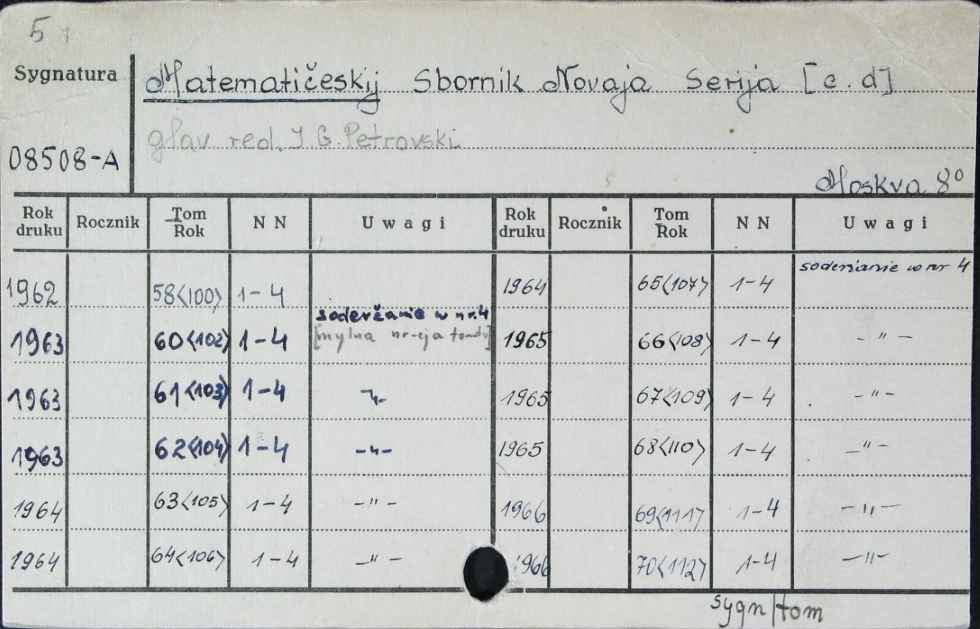 5
Sygnatura Matematičeskij Sbornik Novaja Serija [c.d]
glav red. I. G. Petrovski
08508-A
Moskva 8°
Rok druku Rocznik Tom Rok NN Uwagi Rok druku Rocznik Tom Rok NN Uwagi
1962 58<100> 1-4 1964 65<107> 1-4 soderžanie w nr 4
soderžanie w nr.4
1963 60<102> 1-4 [mylna nr-cja tomu] 1965 66<108> 1-4 -"-
1963 61<103> 1-4 -"- 1965 67<109> 1-4 -"-
1963 62<104> 1-4 -"- 1965 68<110> 1-4 -"-
1964 63<105> 1-4 -"- 1966 69<111> 1-4 -"-
1964 64<106> 1-4 -"- 1966 70<112> 1-4 -"-
sygn/tom